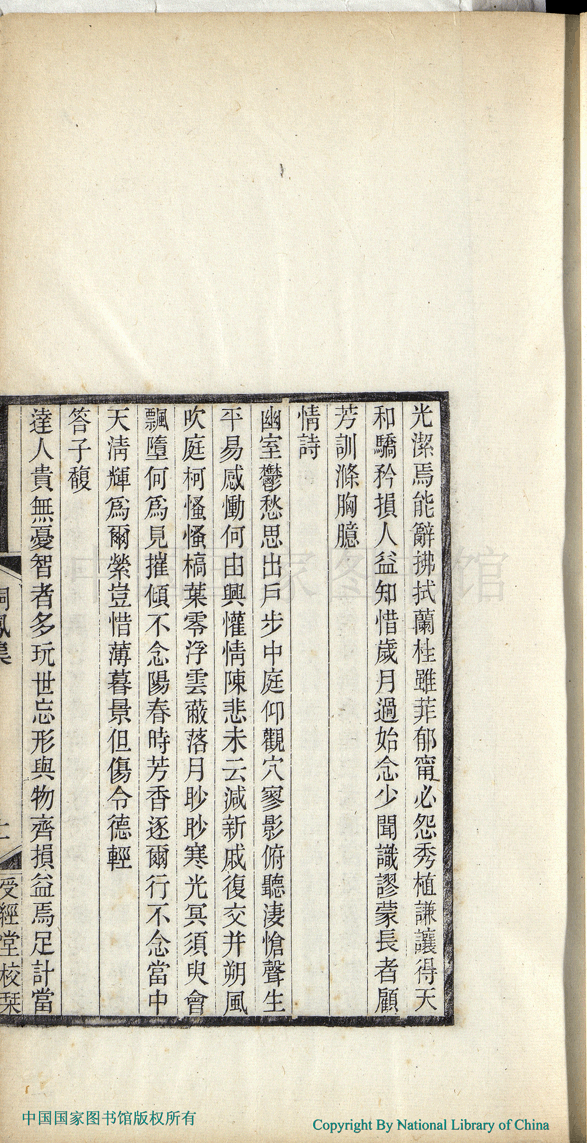 光潔焉能辭拂拭蘭桂雖菲郁甯必怨秀植謙讓得天
和驕矜損人益知惜歲月過始念少聞識謬蒙長者顧
芳訓滌胸臆
情詩
幽室鬱愁思出戶步中庭仰觀穴寥影俯聽淒愴聲生
平易感慟何由興懽情陳悲未云減新戚復交并朔風
吹庭柯慅慅槁葉零浮雲蔽落月眇眇寒光冥須臾會
飄墮何爲見摧傾不念陽春時芳香逐爾行不念當中
天淸輝爲爾縈豈惜薄暮景但傷令德輕
答子馥
達人貴無憂智者多玩世忘形與物齊損益焉足計當
桐鳳集
受經堂校栞
中国国家图书馆
中国国家图书馆版权所有
Copyright By National Library of China